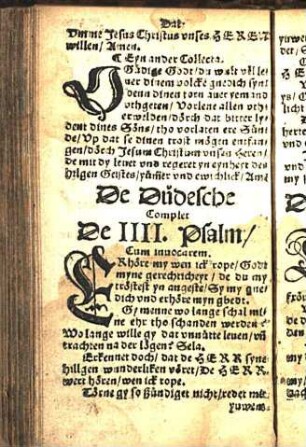 Dat
Vmme Jesus Christus vnses HEREN
willen / Amen.
C Eyn ander Collecta.
GUdige Godt / du wult vël le
uer dinem volcke gnedich syn
denn dinen torn auer
vthgeten / Vorlene allen
erwelden / dörch dat bitter ly
dent dines Söns / tho vorlaten ere Sün
de / Vp dat se dinen trost mögen entfan-
gen / dörch Jesum Christum vnsen Heren /
de mit dy leuet vnd regeret yn eynheit des
hilgen Geistes / ewichlick / Amē
De Düdesche
Complet
De IIII. Psalm /
Cum inuocarem.
ERhöre my wen ick rope / Godt
myne gerechticheyt / de du my
tröstest yn angeste / Sy my gne
dich vnd erhöre myn ghedt.
Gy menne wo lange schal mi
ne ehr tho schanden werden
Wo lange wille gy dat vnnütte leuen / vñ
trachten na der lögen? Sela.
Erkennet doch / dat de HERR syne
hilligen wanderliken vöret / De HERR
wert hören / wen ick rope.
Törne gy so sündiget nicht / redet mit
yuwem